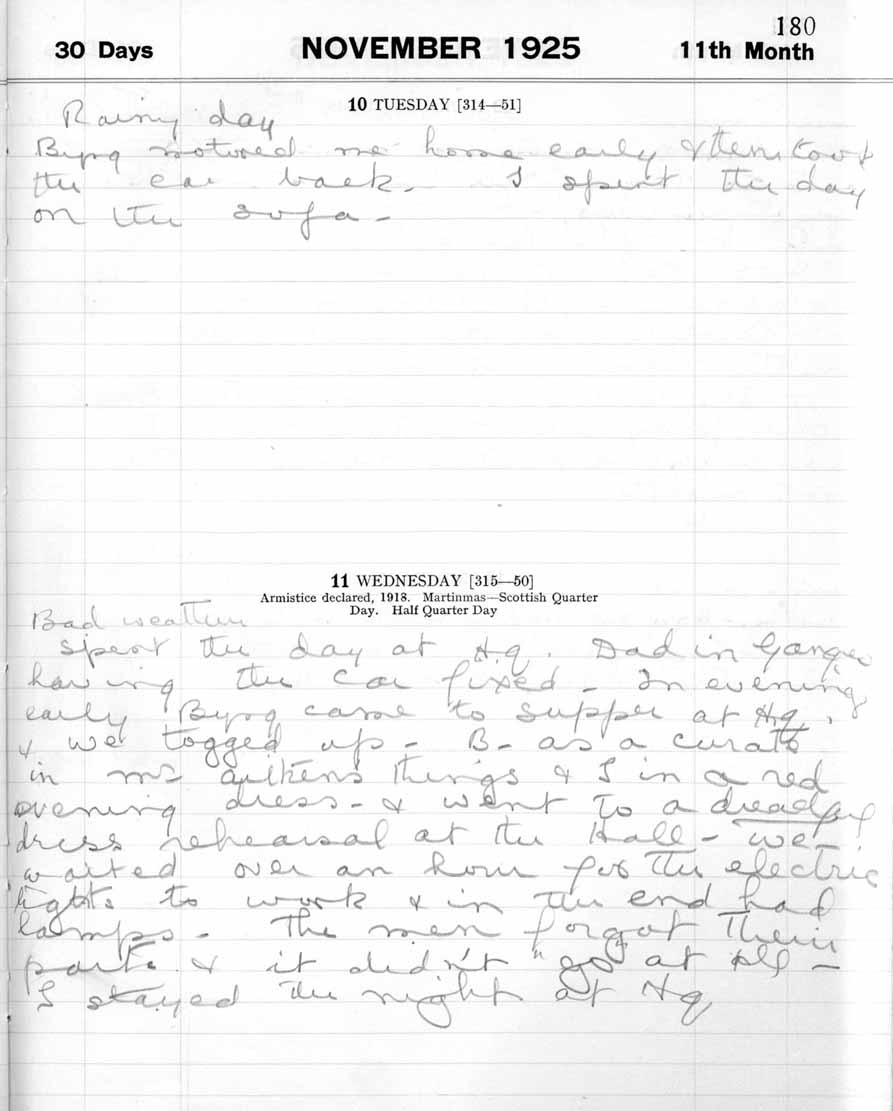 180
30 Days NOVEMBER 1925 11th Month
10 TUESDAY [314—51]
Rainy day
Bypq motored me home early & then took
the car back - I spent the day
on the sofa -
11 WEDNESDAY [315—50]
Armistice declared, 1918. Martinmas—Scottish Quarter
Day. Half Quarter Day
Bad weather
Spent the day at Hq. Dad in Ganges
having the car fixed - In evening
early Bypq came to supper at Hq,
& we togged up - B - as a curate
in Mr Aitkens things & I in a red
evening dress - & went to a dreadful
dress rehearsal at the Hall - we
waited over an hour for the electric
lights to work & in the end had
lamps - The men forgot their
parts & it didn't "go" at all -
I stayed the night at Hq